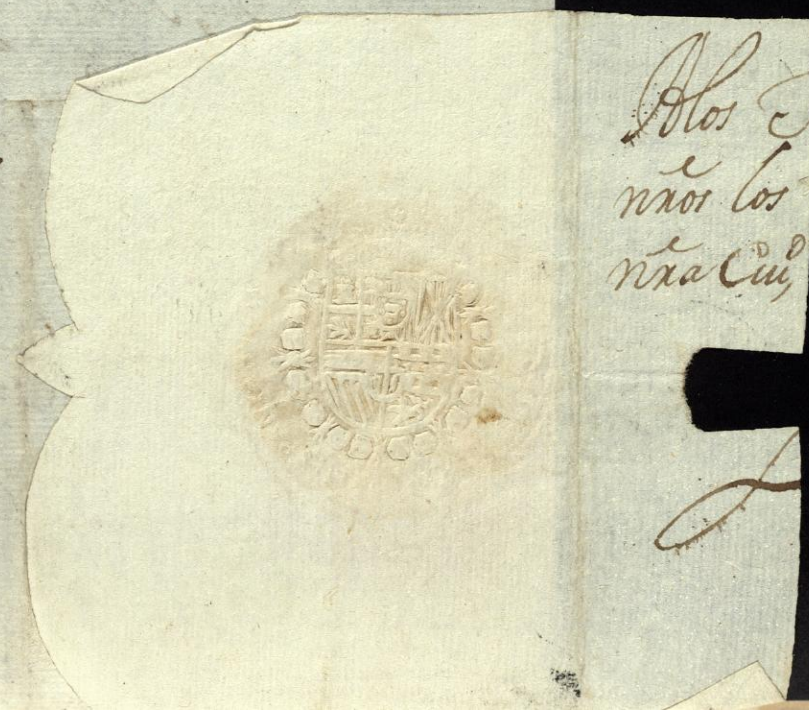 Alos
nros los
nra Ciu,